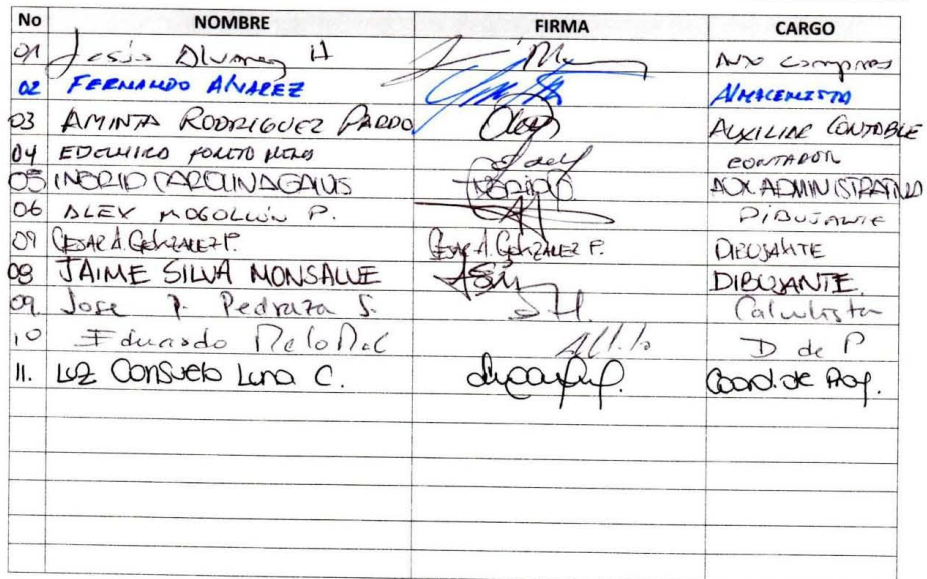 No NOMBRE FIRMA CARGO
01 Jesús Alvarez H AUX compras
02 FERNANDO ALVAREZ ALMACENISTA
03 AMINTA RODRIGUEZ PARDO AUXILIAR CONTABLE
04 EDELMIRO CONTADOR
05 INGRID CAROLINA GALVIS INGRID AUX ADMINISTRATIVO
06 ALEX MOGOLLÓN P. DIBUJANTE
07 CESAR A. GONZALEZ P. CESAR A. GONZALEZ P. DIBUJANTE
08 JAIME SILVA MONSALVE DIBUJANTE.
09. Jose P. Pedraza S. Calculista
10 Eduardo D de P
11. Luz Consuelo Luna C. Coord. de Proy.